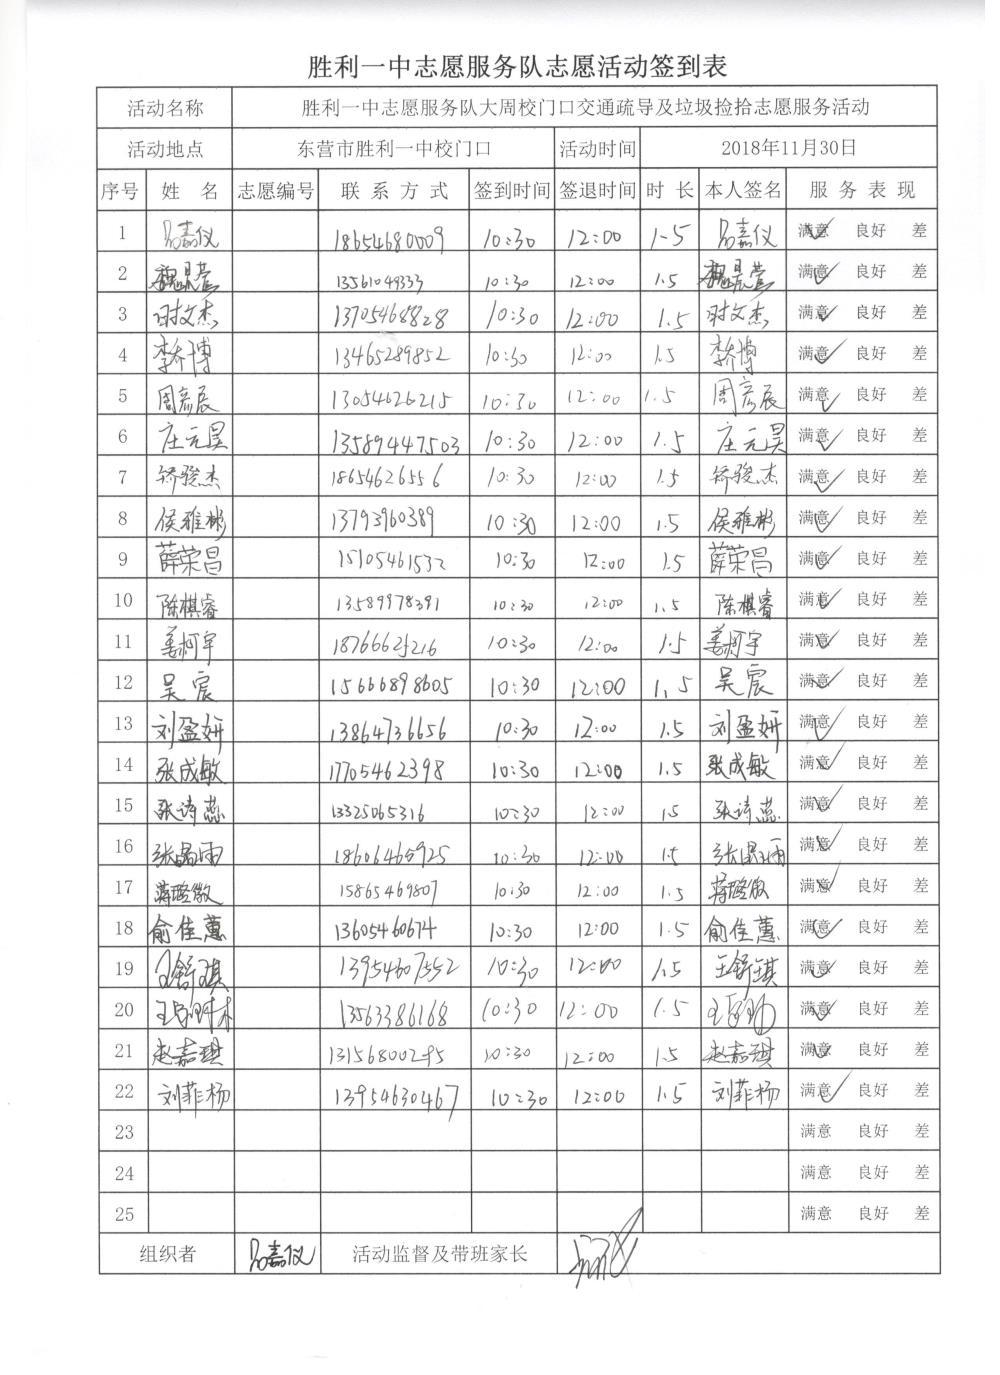 胜利一中志愿服务队志愿活动签到表
活动名称 胜利一中志愿服务队大周校门口交通疏导及垃圾捡拾志愿服务活动
活动地点 东营市胜利一中校门口 活动时间 2018年11月30日
序号 姓 名 志愿编号 联 系 方 式 签到时间 签退时间 时 长 本人签名 服 务 表 现
1 嘉仪 18654680009 10:30 12:00 1.5 嘉仪 满意 良好 差
2 13561049333 10:30 12:00 1.5 满意 良好 差
3 时文杰 13705468828 10:30 12:00 1.5 时文杰 满意 良好 差
4 李乔博 13465289852 10:30 12:00 1.5 李乔博 满意 良好 差
5 周彦辰 13054626215 10:30 12:00 1.5 周彦辰 满意 良好 差
6 庄元昊 13589447503 10:30 12:00 1.5 庄元昊 满意 良好 差
7 矫骏杰 18654626556 10:30 12:00 1.5 矫骏杰 满意 良好 差
8 侯雅彬 13793960389 10:30 12:00 1.5 侯雅彬 满意 良好 差
9 薛荣昌 15105461532 10:30 12:00 1.5 薛荣昌 满意 良好 差
10 陈棋睿 13589978391 10:30 12:00 1.5 陈棋睿 满意 良好 差
11 姜柯宇 18766625216 10:30 12:00 1.5 姜柯宇 满意 良好 差
12 吴宸 15666898605 10:30 12:00 1.5 吴宸 满意 良好 差
13 刘盈妍 13864736656 10:30 12:00 1.5 刘盈妍 满意 良好 差
14 张成敏 17705462398 10:30 12:00 1.5 张成敏 满意 良好 差
15 张诗蕊 13325065316 10:30 12:00 1.5 张诗蕊 满意 良好 差
16 张晶雨 18606465925 10:30 12:00 1.5 张晶雨 满意 良好 差
17 蒋璐微 15865469807 10:30 12:00 1.5 蒋璐微 满意 良好 差
18 俞佳蕙 13605460674 10:30 12:00 1.5 俞佳蕙 满意 良好 差
19 王舒琪 13954607552 10:30 12:00 1.5 王舒琪 满意 良好 差
20 13563386168 10:30 12:00 1.5 满意 良好 差
21 赵嘉琪 10:30 12:00 1.5 赵嘉琪 满意 良好 差
22 刘菲杨 13954630467 10:30 12:00 1.5 刘菲杨 满意 良好 差
23 满意 良好 差
24 满意 良好 差
25 满意 良好 差
组织者 嘉仪 活动监督及带班家长